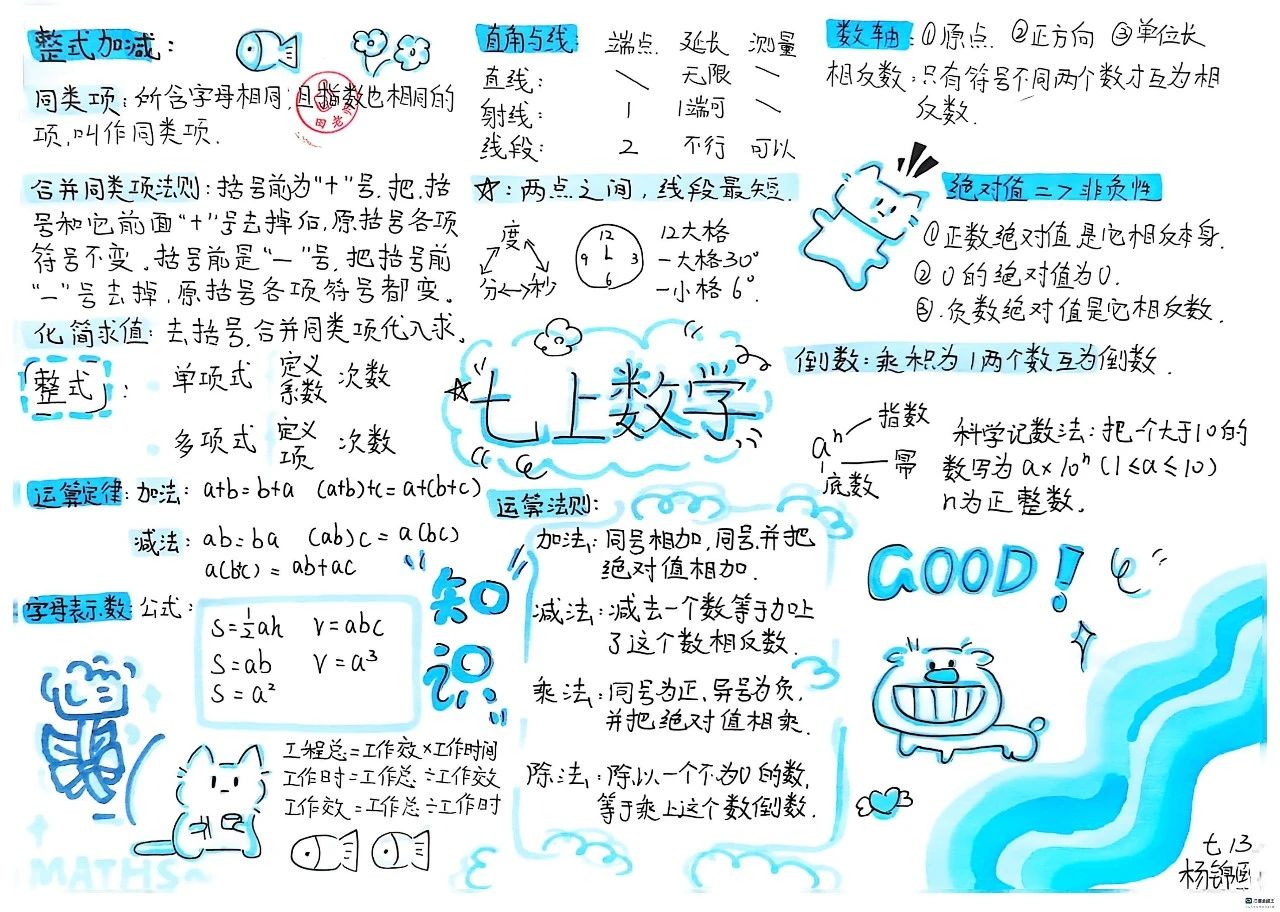 整式加减：
同类项：所含字母相同，且指数也相同的
项，叫作同类项.
合并同类项法则：括号前为“+”号，把，括
号和它前面“+”号去掉后，原括号各项
符号不变。括号前是“一”号，把括号前
“一”号去掉，原括号各项符号都变。
化简求值：去括号，合并同类项代入求。
整式：
单项式 定义 系数 次数
多项式 定义 项 次数
运算定律：加法：a+b=b+a (a+b)+c=a+(b+c)
减法：ab=ba (ab)c=a(bc)
a(b+c)=ab+ac
字母表示数：公式：
S=½ah V=abc
S=ab V=a³
S=a²
工程总=工作效×工作时间
工作时=工作总÷工作效
工作效=工作总÷工作时
MATHS
直角与线： 端点 延长 测量
直线： \ 无限 \
射线： 1 1端可 \
线段： 2 不行 可以
☆：两点之间，线段最短.
度
分↔秒
12
9 3
6
12大格
一大格30°
一小格6°.
七上数学
知识
运算法则：
加法：同号相加，同号，并把
绝对值相加.
减法：减去一个数等于加上
了这个数相反数.
乘法：同号为正，异号为负，
并把绝对值相乘.
除法：除以一个不为0的数，
等于乘上这个数倒数.
数轴：①原点 ②正方向 ③单位长
相反数：只有符号不同两个数才互为相
反数.
绝对值=>非负性
①正数绝对值是它相反本身.
②0的绝对值为0.
③.负数绝对值是它相反数.
倒数：乘积为1两个数互为倒数.
aⁿ
指数
幂
底数
科学记数法：把一个大于10的
数写为a×10ⁿ(1≤a≤10)
n为正整数.
GOOD!
七.13
杨锦